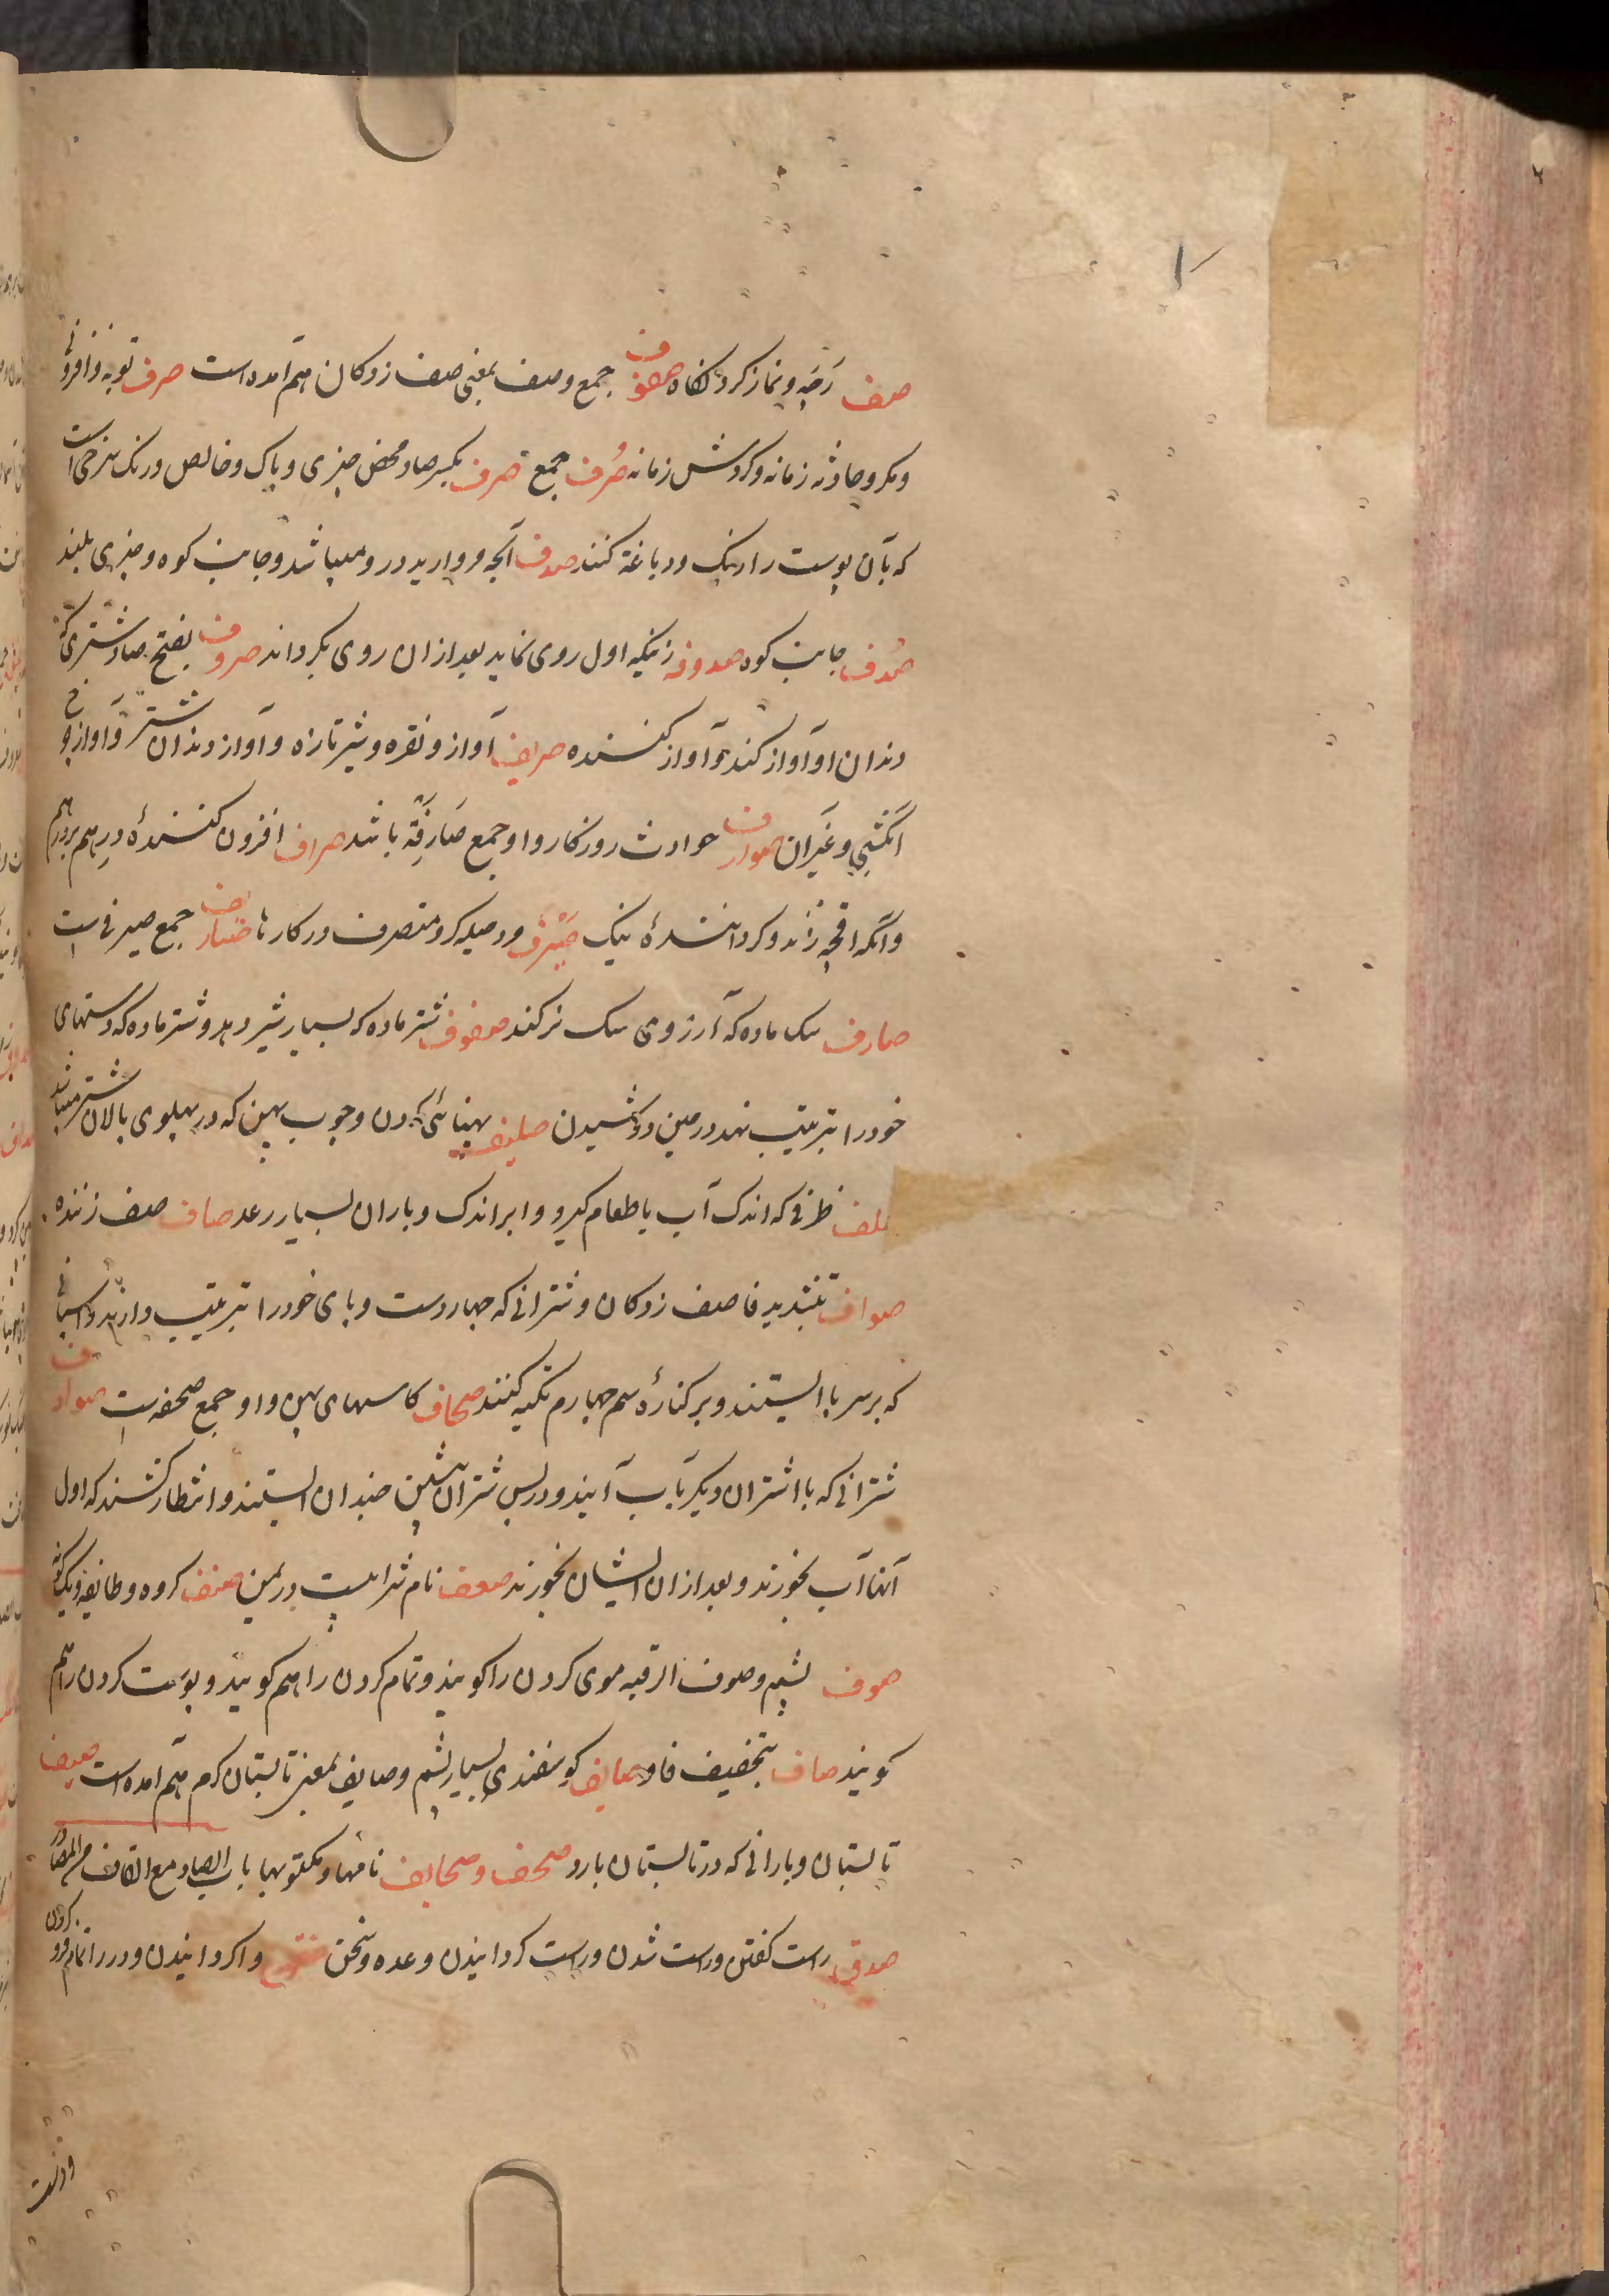 صف رجه و نماز کردنکاه صفوف جمع و صف بمعنی صف زدکان هم آمده است صرف توبه و افزونی
و مکر و حادثه زمانه و کردش زمانه صُرف جمع صرف بکسر صاد محض چیزی و پاک و خالص و رنک سرخی است
که بآن پوست را رنک و دباغة کنند صدف آنچه مروارید درو میباشد و جانب کوه و چیزی بلند
صُدف جانب کوه صدوف زنیکه اول روی نماید بعد ازان روی بکرداند صروف بفتح صاد شتری که
دندان او آواز کند و آواز کننده صریف آواز و نقره و شیر تازه و آواز دندان شتر و آواز
انکشتی و غیر آن صوارف حوادث روزکار و او جمع صَارِفَة باشد صراف افزون کنندهٔ درهم بر درهم
و آنکه اقچه زند و کردانندهٔ نیک صَیْرَف و حیله کر و متصرف در کارها صیارف جمع صیرفی است
صارف سک ماده که آرزوی سک نر کند صفوف شتر ماده که بسیار شیر دهد و شتر ماده که دستهای
خود را بترتیب نهد در حین دوشیدن صلیف پهنائی کردن و چوب پهن که در پهلوی پالان شتر میباشد
صلف ظرفی که اندک آب یا طعام کیرد و ابر اندک و باران بسیار رعد صاف صف زننده
صواف بتشدید فا صف زدکان و شترانی که چهار دست و پای خود را بترتیب دارند و اسبانی
که بر سه پا ایستند و بر کنارهٔ سم چهارم تکیه کنند صحاف کاسهای پهن و او جمع صحفه است صوادف
شترانی که با اشتران دیکر بآب آیند و در پس شتران پیشین چندان ایستند و انتظار کشند که اول
آنها آب بخورند و بعد ازان ایشان بخورند صعف نام شرابیست در یمن صنف کروه و طایفه و یک کونه
صوف پشم و صوف الرقبه موی کردن را کویند و تمام کردن را هم کویند و پوست کردن را هم
کویند صاف بتخفیف فا و صایف کوسفندی بسیار پشم و صایف بمعنی تابستان کرم هم آمده است صیف
تابستان و بارانی که در تابستان بارد صحف و صحایف نامها و مکتوبها باب الصاد مع القاف من المصادر
صدق راست کفتن و راست شدن و راست کردانیدن وعده و سخن واکردانیدن و در را تمام فرو کردن